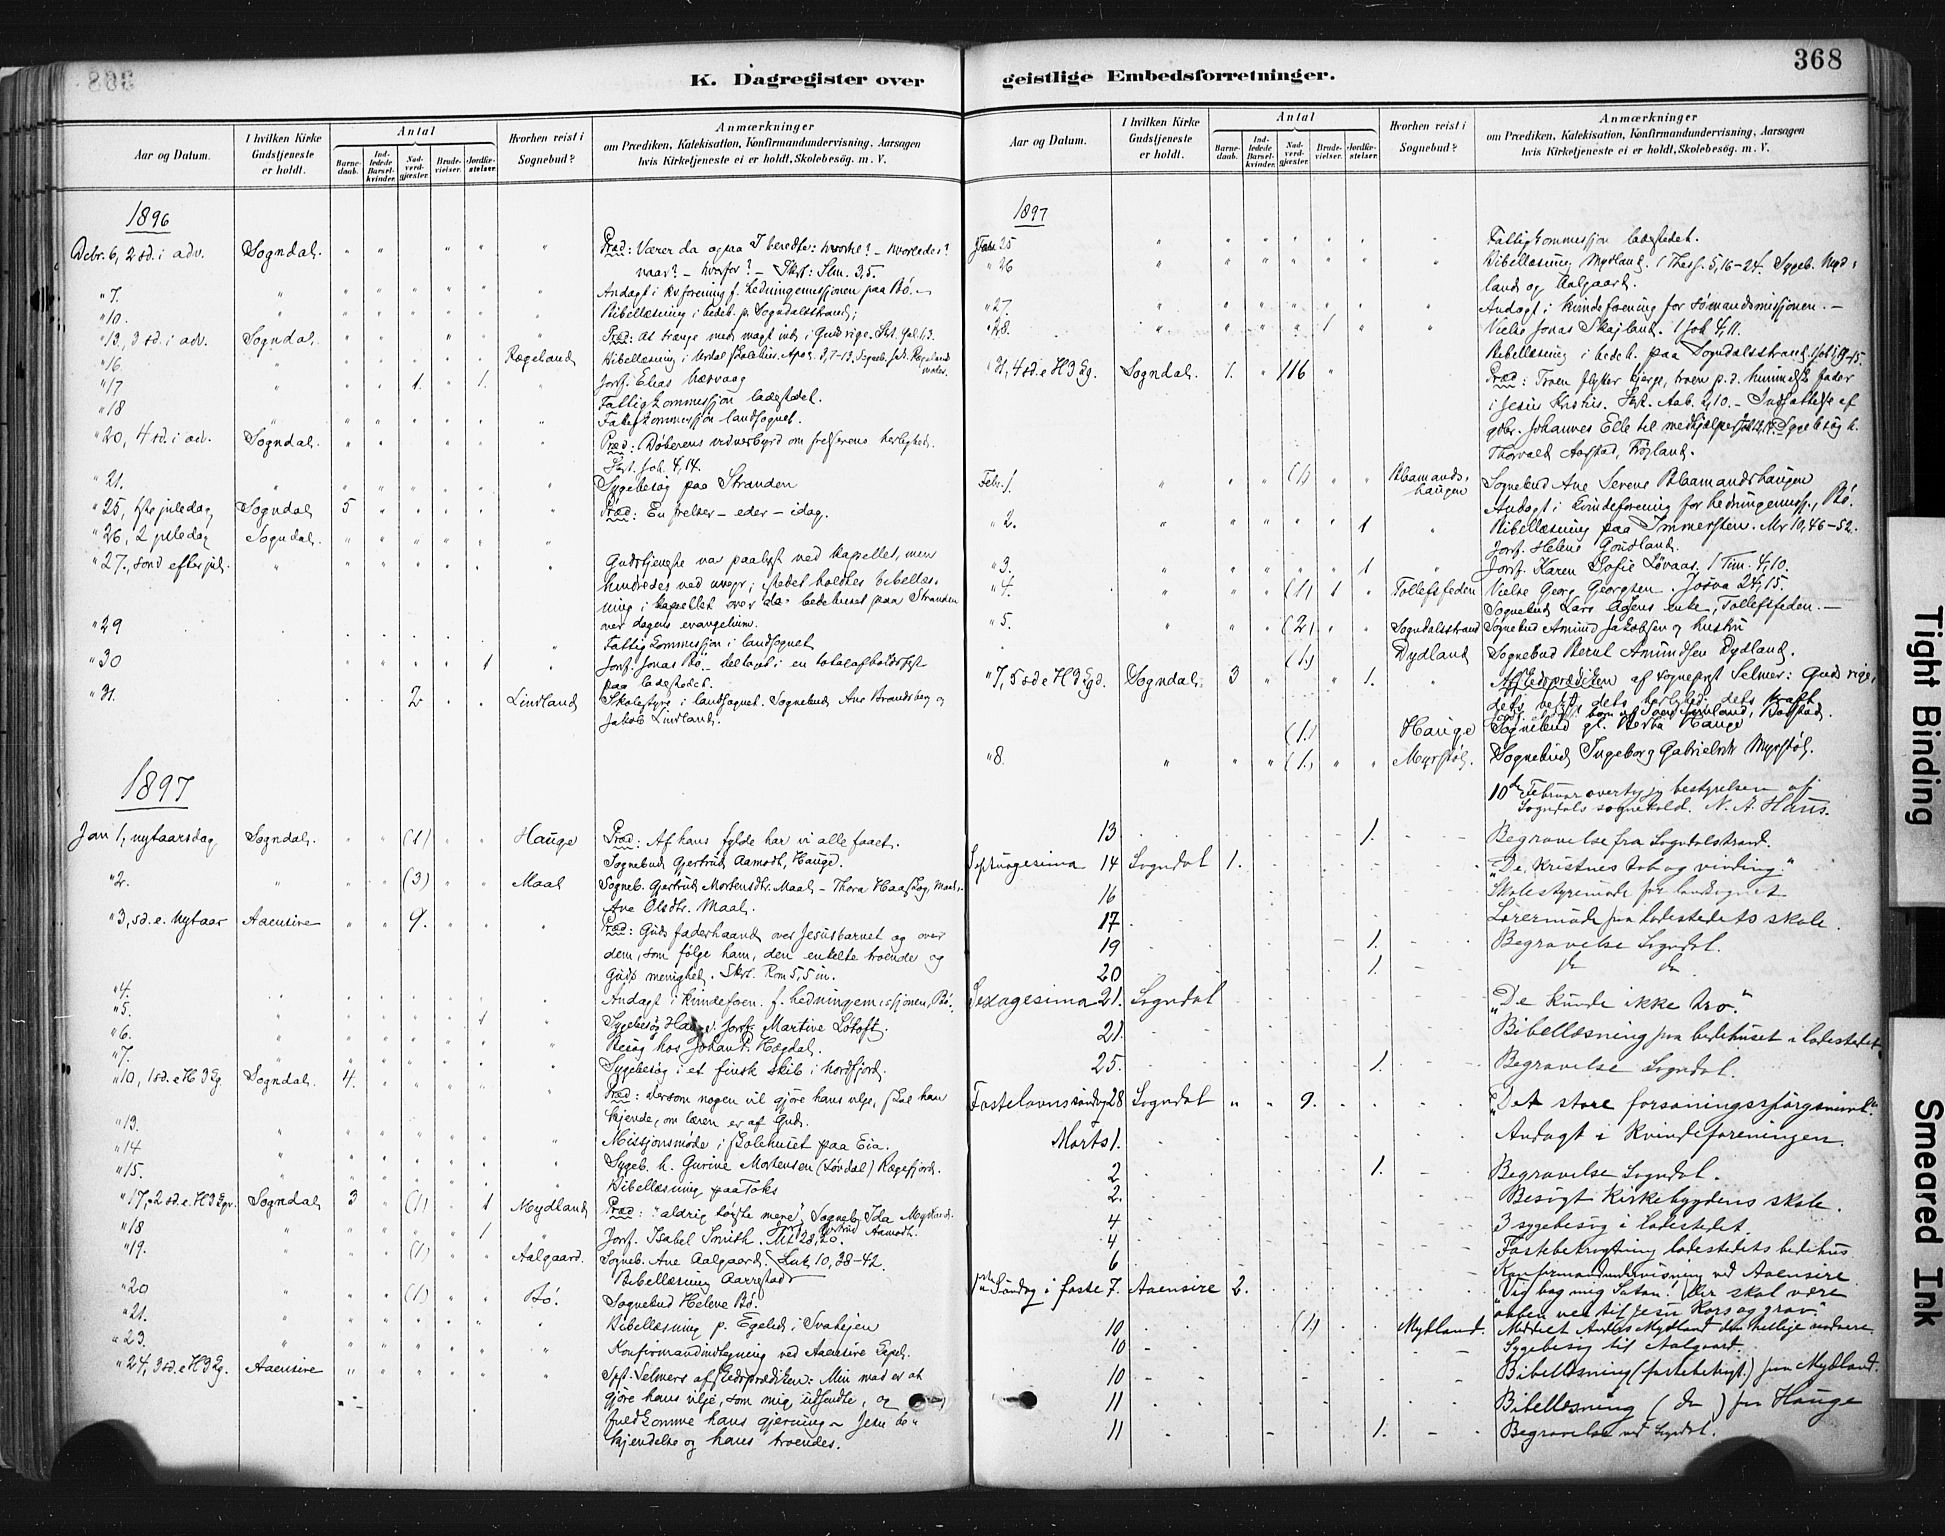 368
K. Dagregister over
Aar og Datum.
I hvilken Kirke Gudstjeneste er holdt.
Antal
Barnedaab.
Indledede Barselkvinder.
Nadverdgjæster.
Brudevielser.
Jordfæstelser.
Hvorhen reist i Sognebud?
Anmærkninger
om Prædiken, Katekisation, Konfirmandundervisning, Aarsagen
hvis Kirketjeneste ei er holdt, Skolebesøg. m. V.
1896
Decbr. 6, 2 sd. i adv. Sogndal. Præd: Værer da ogsaa I beredte: hvorhe? - hvorledes?
naar? - hvorfor? -
" 7. Andagt i kvforening f. hedningemissjonen paa Bø.
" 10. Bibellæsning i bedeh. p. Sogndalstrand;
" 13, 3 sd. i adv. Sogndal. Præd: At trænge med magt ind i Guds rige.
" 16. Rægeland Bibellæsning i Urdal skolehus.
" 17 1. 1. Jorf. Elias
" 18 Fattigkommissjon ladestedet.
Fattigkommissjon landsognet.
" 20, 4 sd. i adv. Sogndal. Præd: Døberens vidnesbyrd om frelserens herlighed.
Skrt. Joh. 4,14.
" 21. Sygebesøg paa Stranden
" 25, 1ste juledag Sogndal 5 Præd: En frelser - eder - idag.
" 26, 2 juledag Sogndal.
" 27., sønd efter jul. Gudstjeneste var paalyst ved kapellet, men
hindredes ved uveir; istedet holdtes bibellæs-
ning i kapellet over da bedehuset paa Stranden
over dagens evangelium.
" 29 Fattigkommissjon i landsognet
" 30 1 Jorf: Jonas Bø. - deltaget i en totalafholdsfest
paa ladestedet.
" 31. 2 Lindland Skolestyre i landsognet. Sognebud Ane Strandsberg og
Jakob Lindland.
1897
Jan 1, nytaarsdag Sogndal. (1) Hauge Præd: Af hans fylde har vi alle faaet.
Sognebud Gjertrud Aamodt, Hauge.
" 2. (3) Maal Sogneb. Gjertrud Mortensdtr. Maal - Thora
Ane Olsdtr. Maal.
" 3, sd. e. Nytaar Aaensire 9. Præd: Guds faderhaand over Jesusbarnet og over
dem, som følge ham, den enkelte troende og
Guds menighed. Skrt. Rom 5,5 in.
" 4. Andagt i kvindeforen. f. hedningemissjonen, Bø.
" 5. 1 Sygebesøg Hauge. Jorf. Martine Løtoft.
" 6. Besøg hos Johan P. Hægdal.
" 7. Sygebesøg i et finsk skib i Nordfjord.
" 10, 1 sd. e H3Kg Sogndal. 4. Præd: dersom nogen vil gjøre hans vilje, skal han
kjende, om læren er af Gud.
" 13. Missjonsmøde i skolehuset paa Eia.
" 14 Sygeb. h. Gurine Mortensen (Løvdal) Rægefjord.
" 15. Bibellæsning paa Toks
" 17, 2 sd. e H3Kgr. Sogndal 3 (1) 1 Mydland Præd: "aldrig tørste mere". Sogneb. Ida Mydland.
" 18 1 Jorf. Isabel Smith.
" 19. (1) Aalgaard. Sogneb. Ane Aalgaard. Luk 10, 38-42.
Bibellæsning Aarrestad
" 20 (1) Bø. Sognebud Helene Bø.
" 21. Bibellæsning p. Egelid i Svahejen
" 23. Konfirmandindtegning ved Aaensire kapel.
" 24, 3 sd. e H3Kg. Aaensire Spt. Selmers afskedsprædiken: Min mad er at
gjøre hans vilje, som mig udsendte, og
fuldkomme hans gjerning - Jesu be-
kjendelse og hans troendes.
geistlige Embedsforretninger.
Aar og Datum.
I hvilken Kirke Gudstjeneste er holdt.
Antal
Barnedaab.
Indledede Barselkvinder.
Nadverdgjæster.
Brudevielser.
Jordfæstelser.
Hvorhen reist i Sognebud?
Anmærkninger
om Prædiken, Katekisation, Konfirmandundervisning, Aarsagen
hvis Kirketjeneste ei er holdt, Skolebesøg. m. V.
1897
Jan 25 Fattigkommissjon ladestedet.
" 26 Bibellæsning Mydland. 1 Thess. 5,16-24. Sygeb. Myd-
land og Aalgaard.
" 27. Andagt i kvindeforening for sømandsmissjonen. -
" 28. 1 Viels Jonas Skajland. 1 Joh 4,11.
Bibellæsning i bedeh. paa Sogndalsstrand.
" 31, 4 sd. e H3Kg. Sogndal. 1. 116 Præd: Troen flytter bjerge, troen p. d. himmelsk fader
i Jesus Kristus. Skrt. Aab. 2,10. - Indsættelse af
gdbr. Johannes Elle til medhjælper. Sygebesøg h.
Thorvald Aarstad, Frøjland.
Febr. 1. (1) Blamandshaugen Sognebud Ane Serene Blamandshaugen
Andagt i kvindeforening for hedningemiss., Bø.
" 2. 1 Bibellæsning paa Immersten. Mr 10,46-52.
Jorf. Helene Gondland.
" 3. 1 Jorf. Karen Sofie Løvaas. 1 Tim. 4,10.
" 4. (1) 1 Tollefsfeden Vielse Georg Georgsen. Josva 24,15.
Sognebud Lars Ages enke, Tollefsfeden. -
" 5. (2) Sogndalsstrand Sognebud Amund Jakobsen og hustru
(1) Dydland Sognebud Bernt Amundsen Dydland.
" 7, 5 sd e H3Kgd. Sogndal. 3 1. Afskedsprædiken af sognepr. Selmer: Guds rige,
dets vext, dets herlighed, dets kraft.
(1) Hauge Sognebud gl. Berta Hauge
" 8. (1) Myrstøl. Sognebud Ingeborg Gabrielsdtr Myrstøl.
10de Februar overtog jeg bestyrelsen af
Sogndals sognekald. N. A. Huus.
13 1. Begravelse fra Sogndalstrand.
Septuagesima 14 Sogndal 1. "De kristnes tab og vinding."
16 Skolestyremøde for landsognet
17 Lærermøde paa ladestedets skole.
19 1. Begravelse Sogndal.
20 1. do do
Sexagesima 21. Sogndal "De kunde ikke tro."
21. Bibellæsning paa bedehuset i ladestedet
25. 1. Begravelse Sogndal.
Fastelavnssøndag 28 Sogndal 9. "Det store forsoningsspørgsmaal."
Marts 1. Andagt i kvindeforeningen.
2 1. Begravelse Sogndal.
2. Besøgt Kirkebygdens skole.
4 3 sygebesøg i ladestedet.
4 Fastebetragtning ladestedets bedehus
6 Konfirmandundervisning ved Aaensire
1ste søndag i faste 7. Aaensire 2. "Vig bag mig Satan! Der skal være
aaben vei til Jesu kors og grav."
10 (1) Mydland. Meddelt Anders Mydland den hellige nadvere.
10 Sygebesøg til Aalgaard.
10 Bibellæsning (fastebetragt.) paa Mydland.
11 Bibellæsning (do) paa Hauge
11 1. Begravelse ved Sogndal.
Tight Binding
Smeared Ink